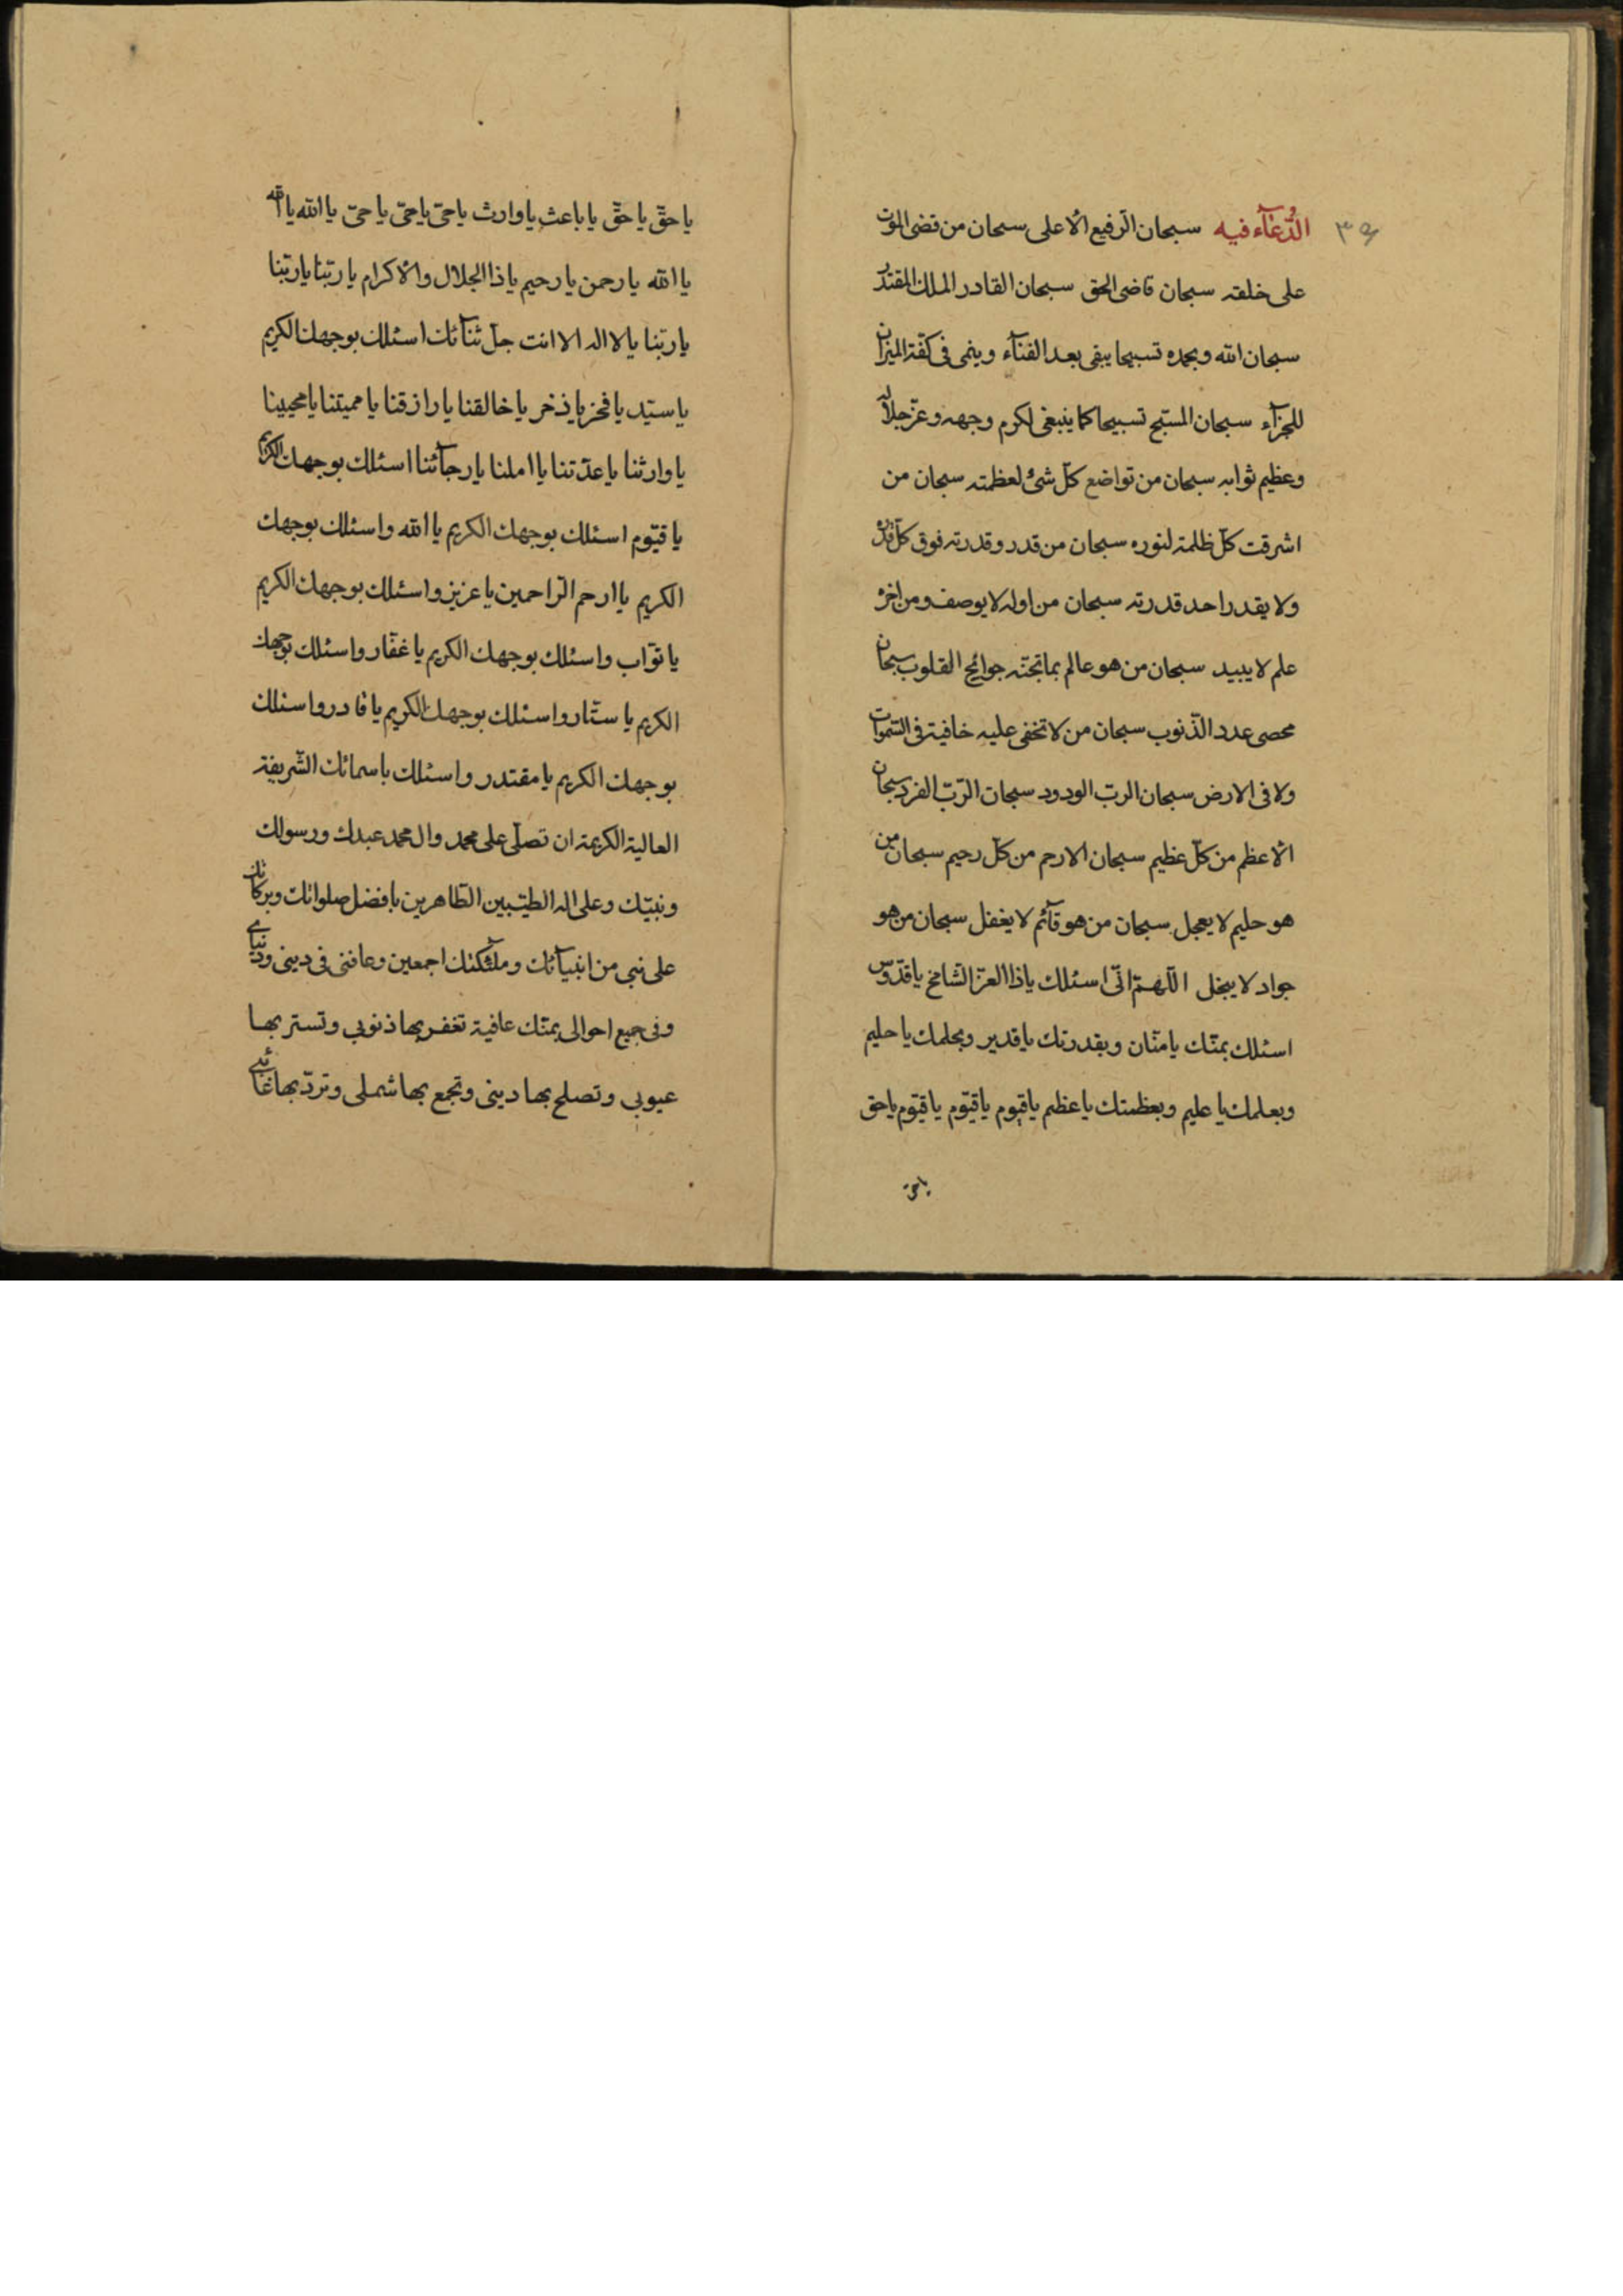 الدّعآء فيه سبحان الرفيع الاعلى سبحان من قضى الموت
على خلقه سبحان قاضى الحق سبحان القادر الملك المقتدر
سبحان الله وبحمده تسبيحا يبقى بعد الفنآء وينمى فى كفة الميزان
للجزآء سبحان المسبّح تسبيحا كما ينبغى لكرم وجهه وعزّ جلاله
وعظيم ثوابه سبحان من تواضع كلّ شئ لعظمته سبحان من
اشرقت كلّ ظلمة لنوره سبحان من قدر وقدرته فوق كلّ
ولا يقدر احد قدرته سبحان من اوله لا يوصف ومن اخره
علم لا يبيد سبحان من هو عالم بما تجنّه جوانح القلوب سبحان
محصى عدد الذّنوب سبحان من لا تخفى عليه خافية فى السّموات
ولا فى الارض سبحان الربّ الودود سبحان الرّبّ الفرد سبحان
الاعظم من كلّ عظيم سبحان الارحم من كلّ رحيم سبحان من
هو حليم لا يعجل سبحان من هو قآئم لا يغفل سبحان من هو
جواد لا يبخل اللّهمّ انّى اسئلك يا ذا العزّ الشّامخ يا قدّوس
اسئلك بمنّك يا منّان وبقدرتك يا قدير وبحلمك يا حليم
وبعلمك يا عليم وبعظمتك يا عظيم يا قيوم يا قيّوم يا قيّوم يا حق
يا حق
يا حقّ يا حقّ يا باعث يا وارث يا حىّ يا حىّ يا حىّ يا الله يا الله
يا الله يا رحمن يا رحيم يا ذا الجلال والاكرام يا ربّنا يا ربّنا
يا ربّنا يا لا اله الا انت جلّ ثنآئك اسئلك بوجهك الكريم
يا سيّد يا فخر يا ذخر يا خالقنا يا رازقنا يا مميتنا يا محيينا
يا وارثنا يا عدّتنا يا املنا يا رجآئنا اسئلك بوجهك الكريم
يا قيّوم اسئلك بوجهك الكريم يا الله واسئلك بوجهك
الكريم يا ارحم الرّاحمين يا عزيز واسئلك بوجهك الكريم
يا توّاب واسئلك بوجهك الكريم يا غفّار واسئلك بوجهك
الكريم يا ستّار واسئلك بوجهك الكريم يا قادر واسئلك
بوجهك الكريم يا مقتدر واسئلك باسمائك الشّريفة
العالية الكريمة ان تصلّى على محمد وال محمد عبدك ورسولك
ونبيّك وعلى اله الطيّبين الطّاهرين بافضل صلواتك وبركاتك
على نبى من انبيآئك وملٓئكتك اجمعين وعافنى فى دينى ودنياى
وفى جميع احوالى بمنّك عافية تغفر بها ذنوبى وتستر بها
عيوبى وتصلح بها دينى وتجمع بها شملى وتردّ بها غائبى